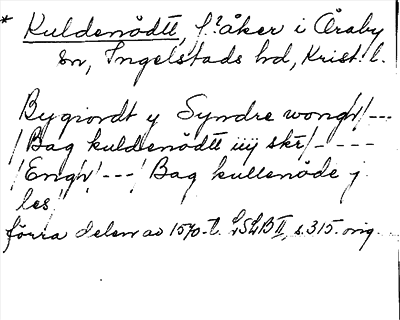 * Kuldenödtt, f.? åker i Öraby
sn, Ingelstads hd, Krist. l.
Bygiordt y Syndre wongh/ ---
/ Bag kuldenödtt iiij skr/ - - - -
/ Engh/ --- / Bag kullenöde j
les/
förra delen av 1570-t. LSLB II, s. 315. orig.